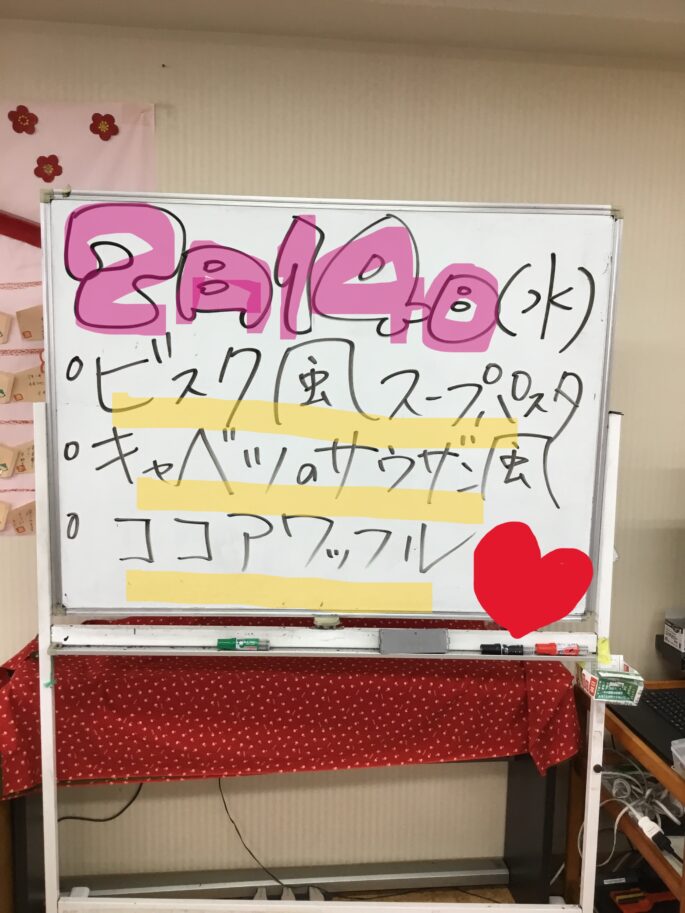 2月14日(水)
○ビスク風スープパスタ
○キャベツのサウザン風
○ココアワッフル